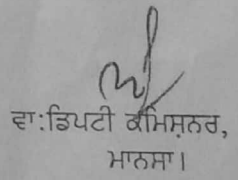 ਵਾ:ਡਿਪਟੀ ਕਮਿਸ਼ਨਰ,
ਮਾਨਸਾ।